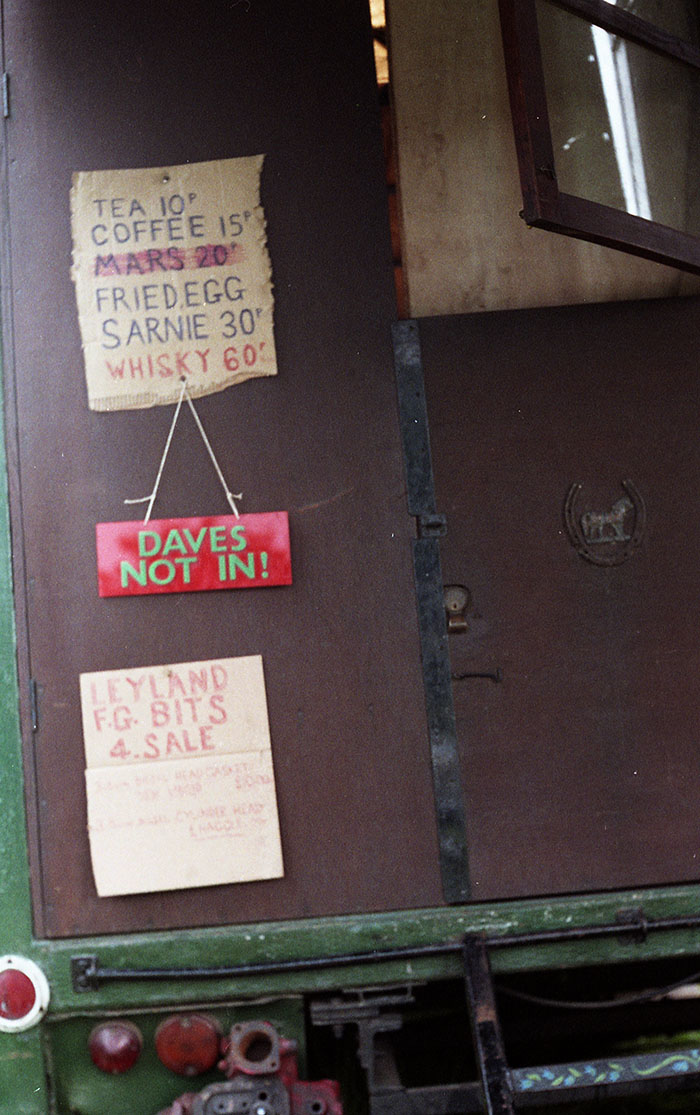 TEA 10P
COFFEE 15P
MARS 20P
FRIED.EGG
SARNIE 30P
WHISKY 60P
DAVES
NOT IN!
LEYLAND
F.G. BITS
4. SALE
HEAD GASKET
CYLINDER HEAD